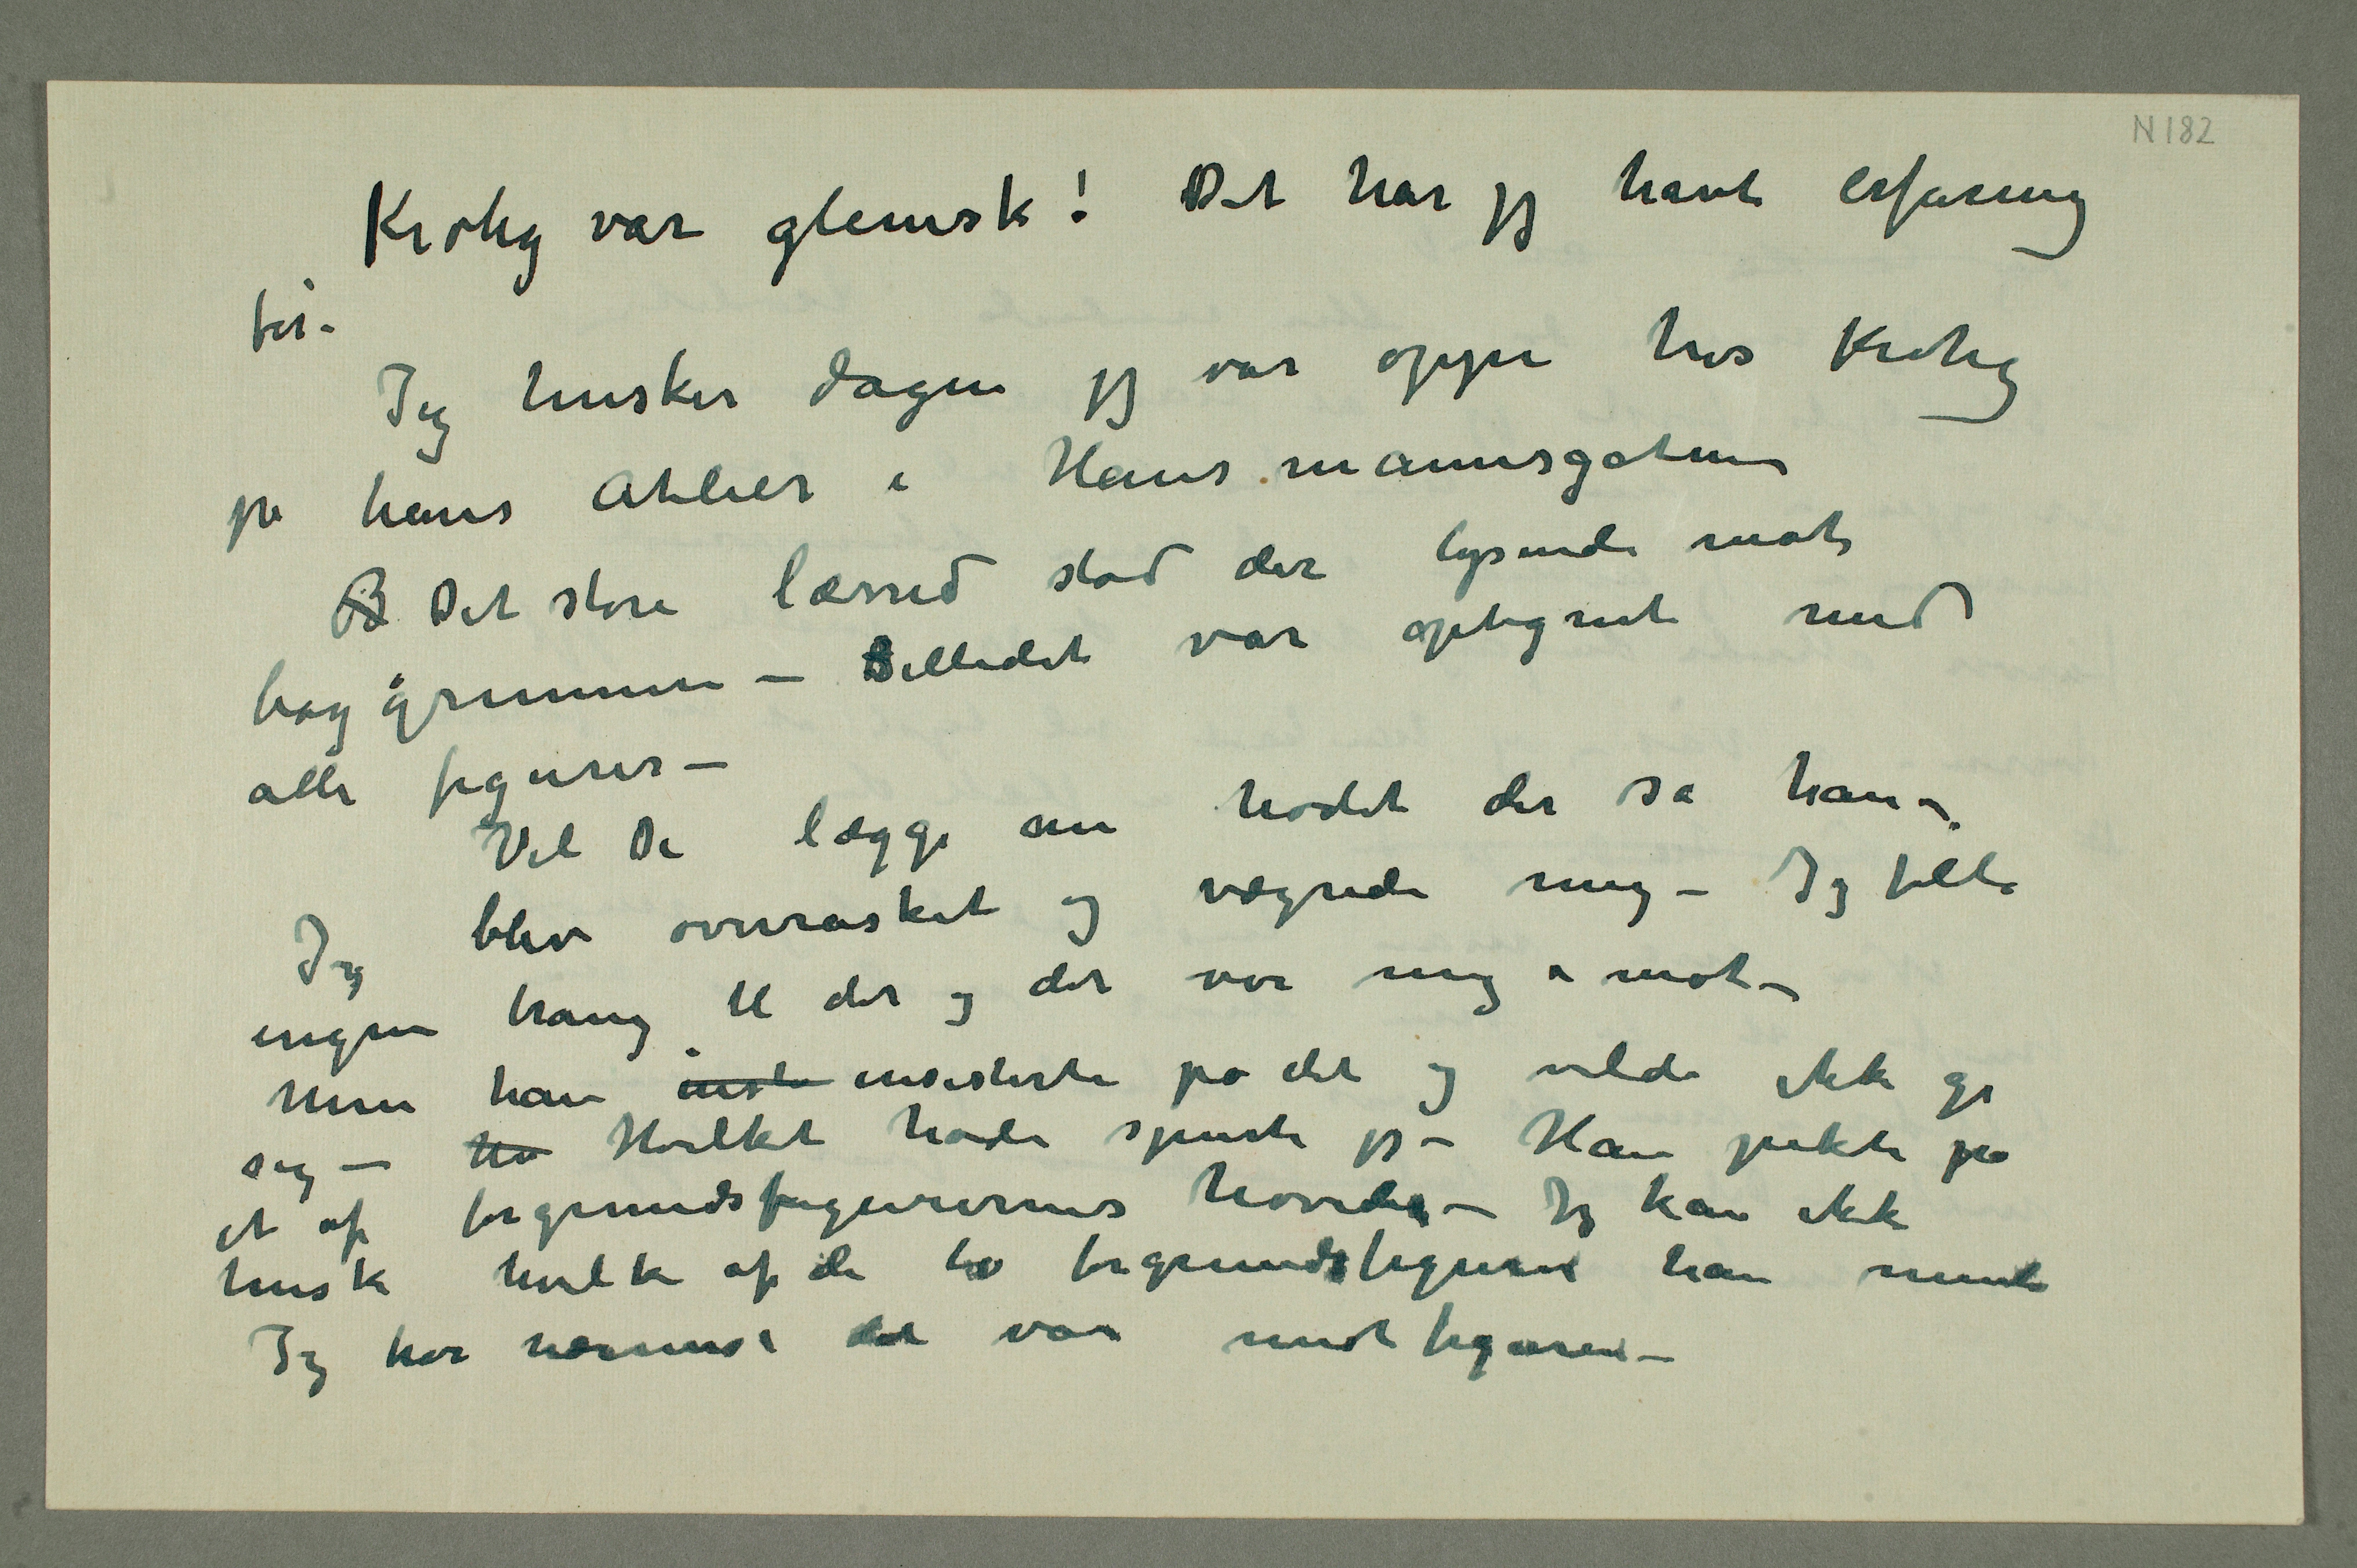 N 182
Krohg var glemsk! Det har jeg havt erfaring
for.
Jeg husker dagen jeg var oppe hos Krohg
på hans Atelier i Hausmannsgaten
B Det store lærred stod der lysende mot
baggrunnen – Billedet var optegnet med
alle figurer –
Vil De lægge an hodet der sa han –
Jeg blev overrasket og vægrede mig – Jeg følte
ingen trang til det og det var mig imot –
Men han inste insisterte på det og vilde ikke gi
sig – Hv Hvilket hode spurte jeg – Han pekte på
et af forgrundsfigurernes hoveder – Jeg kan ikke
huske hvilke af de to forgrundsfigurer han mente
Jeg tror nærmest det var midtfiguren –